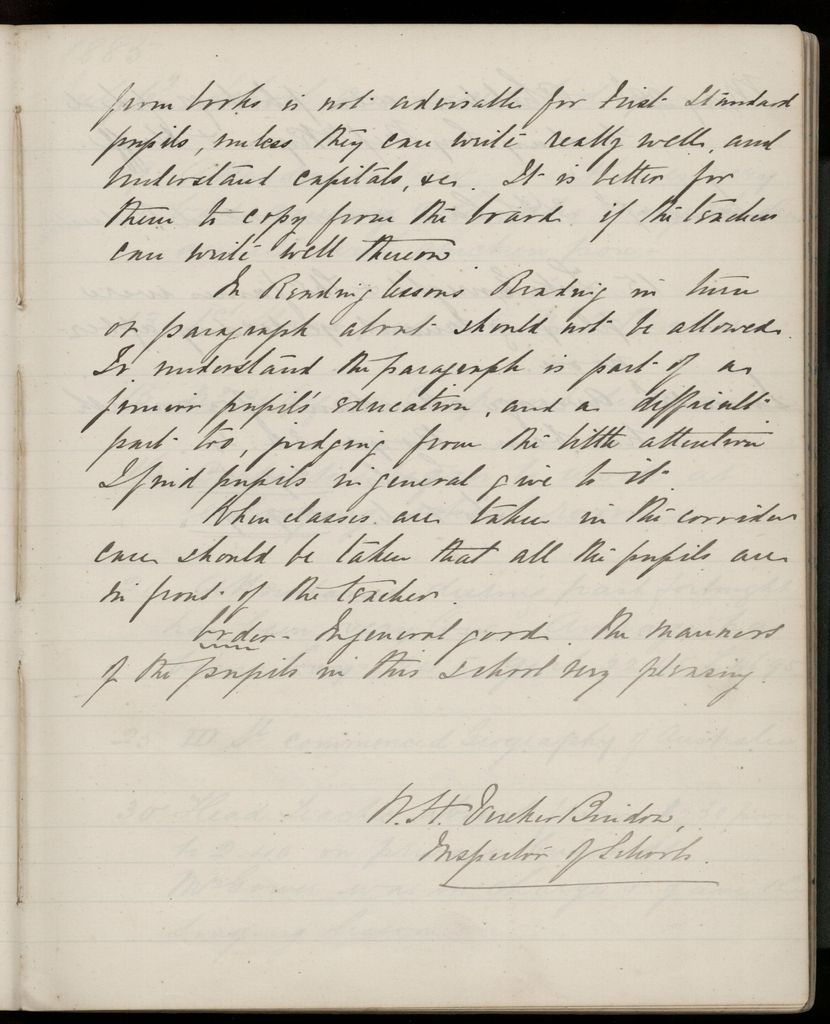 from books is not advisable for First Standard
pupils, unless they can write really well, and
understand capitals, &c. It is better for
them to copy from the board if the teacher
can write well thereon
In Reading lessons Reading in turn
or paragraph about should not be allowed.
To understand the paragraph is part of a
junior pupil's education, and a difficult
part too, judging from the little attention
I find pupils in general give to it.
When classes are taken in the corridor
care should be taken that all the pupils are
in front of the teacher.
Order - In general good. The manners
of the pupils in this school very pleasing.
W. H. Tucker Bindon,
Inspector of Schools.